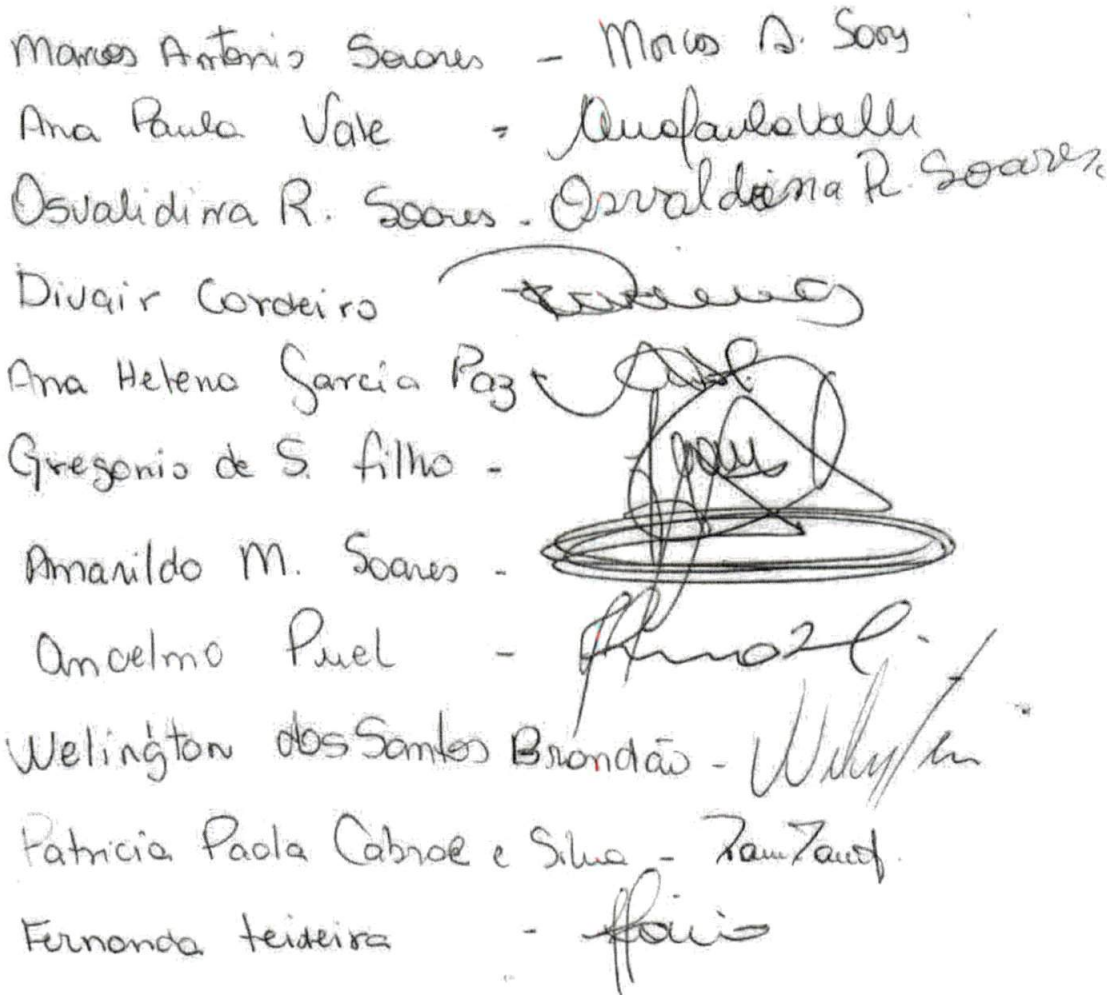 Marcos Antonio Soares - Marcos A. Soares
Ana Paula Vale - Ana Paula Valle
Osvalidina R. Soares - Osvaldina R. Soares
Divair Cordeiro
Ana Helena Garcia Paz
Gregorio de S. filho -
Amarildo M. Soares -
Ancelmo Puel -
Welington dos Santos Brandão -
Patricia Paola Cabral e Silva -
Fernanda teideira -